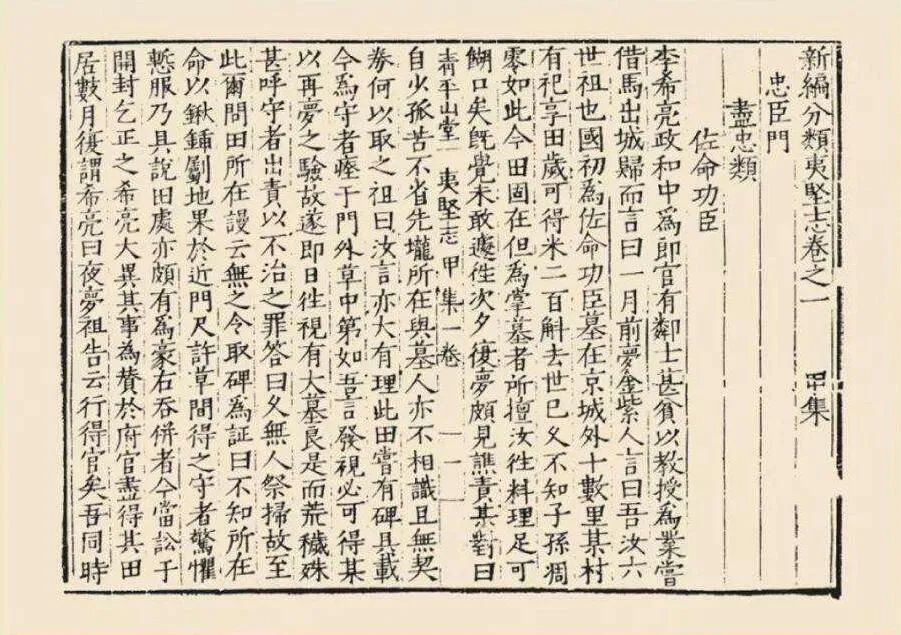 新編分類夷堅志卷之一 甲集
忠臣門
盡忠類
佐命功臣
李希亮政和中爲郎官有鄰士甚貧以教授爲業嘗
借馬出城歸而言曰一月前夢金紫人言曰吾汝六
世祖也國初爲佐命功臣墓在京城外十數里某村
有祀享田歲可得米二百斛去世已久不知子孫凋
零如此今田固在但為掌墓者所擅汝徃料理足可
餬口矣旣覺未敢遽徃次夕復夢頗見譙責某對曰
清平山堂 夷堅志甲集一卷 一
自少孤苦不省先壠所在與墓人亦不相識且無契
劵何以取之祖曰汝言亦大有理此田嘗有碑具載
今爲守者瘞于門外草中第如吾言發視必可得某
以再夢之驗故遂即日徃視有大墓良是而荒穢殊
甚呼守者出責以不治之罪答曰久無人祭掃故至
此爾問田所在謾云無之令取碑爲証曰不知所在
命以鍬鍤劚地果於近門尺許草間得之守者驚懼
慙服乃具說田處亦頗有爲豪右吞併者今當訟于
開封乞正之希亮大異其事為贊於府官盡得其田
居數月復謂希亮曰夜夢祖告云行得官矣吾同時